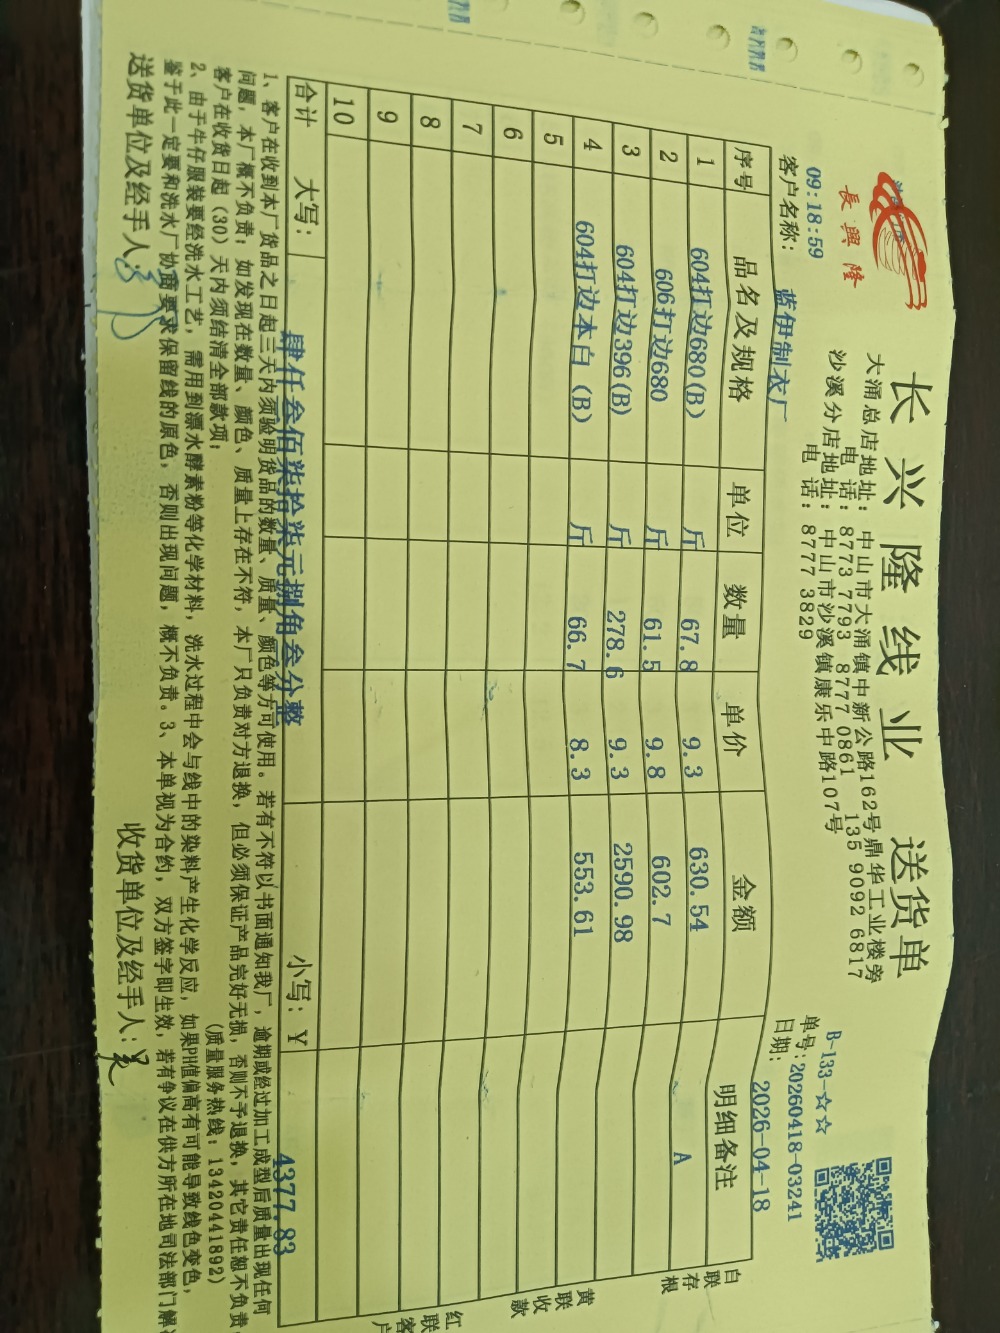 長興隆
长兴隆线业 送货单
大涌总店地址: 中山市大涌镇中新公路162号鼎华工业楼旁
电话: 8773 7793 8777 0861 135 9092 6817
沙溪分店地址: 中山市沙溪镇康乐中路107号
电话: 8777 3829
B-139-☆☆
单号:20260418-03241
09:18:59
客户名称: 蓝伊制衣厂
日期: 2026-04-18
序号 品名及规格 单位 数量 单价 金额 明细备注
1 604打边680(B) 斤 67.8 9.3 630.54
2 606打边680 斤 61.5 9.8 602.7 A
3 604打边396(B) 斤 278.6 9.3 2590.98
4 604打边本白(B) 斤 66.7 8.3 553.61
5
6
7
8
9
10
合计 大写: 肆仟叁佰柒拾柒元捌角叁分整 小写:¥ 4377.83
白联存根
黄联收款
红联客户
1、客户在收到本厂货品之日起三天内须验明货品的数量、质量、颜色等方可使用。若有不符以书面通知我厂，逾期或经过加工成型后质量出现任何
问题，本厂概不负责；如发现在数量、颜色、质量上存在不符，本厂只负责对方退换，但必须保证产品完好无损，否则不予退换，其它责任恕不负责
客户在收货日起（30）天内须结清全部款项；
(质量服务热线:13420441892)
2、由于牛仔服装要经洗水工艺，需用到漂水酵素粉等化学材料，洗水过程中会与线中的染料产生化学反应，如果PH值偏高有可能导致线色变色，
鉴于此一定要和洗水厂协商要求保留线的原色，否则出现问题，概不负责。3、本单视为合约，双方签字即生效，若有争议在供方所在地司法部门解
送货单位及经手人: 收货单位及经手人: